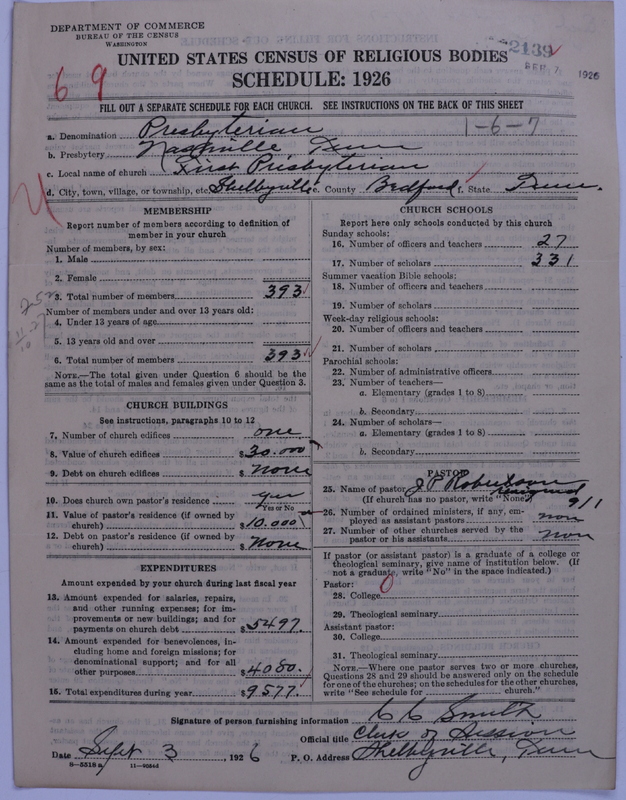 DEPARTMENT OF COMMERCE
BUREAU OF THE CENSUS
WASHINGTON
2139
SEP 7 1926
UNITED STATES CENSUS OF RELIGIOUS BODIES
SCHEDULE: 1926
6 9
FILL OUT A SEPARATE SCHEDULE FOR EACH CHURCH. SEE INSTRUCTIONS ON THE BACK OF THIS SHEET
1-6-7
a. Denomination Presbyterian
b. Presbytery Nashville Tenn
c. Local name of church First Presbyterian
d. City, town, village, or township, etc. Shelbyville e. County Bedford f. State Tenn.
MEMBERSHIP
Report number of members according to definition of
member in your church
Number of members, by sex:
1. Male
2. Female
3. Total number of members 393
Number of members under and over 13 years old:
4. Under 13 years of age
5. 13 years old and over
6. Total number of members 393
NOTE.—The total given under Question 6 should be the
same as the total of males and females given under Question 3.
CHURCH BUILDINGS
See instructions, paragraphs 10 to 12
7. Number of church edifices one
8. Value of church edifices $30.000
9. Debt on church edifices $ None
10. Does church own pastor's residence yes
Yes or No
11. Value of pastor's residence (if owned by
church) $10.000
12. Debt on pastor's residence (if owned by
church) $ None
EXPENDITURES
Amount expended by your church during last fiscal year
13. Amount expended for salaries, repairs,
and other running expenses; for im-
provements or new buildings; and for
payments on church debt $5497.
14. Amount expended for benevolences, in-
cluding home and foreign missions; for
denominational support; and for all
other purposes $4080.
15. Total expenditures during year $9577.
CHURCH SCHOOLS
Report here only schools conducted by this church
Sunday schools:
16. Number of officers and teachers 27
17. Number of scholars 331
Summer vacation Bible schools:
18. Number of officers and teachers
19. Number of scholars
Week-day religious schools:
20. Number of officers and teachers
21. Number of scholars
Parochial schools:
22. Number of administrative officers
23. Number of teachers—
a. Elementary (grades 1 to 8)
b. Secondary
24. Number of scholars—
a. Elementary (grades 1 to 8)
b. Secondary
PASTOR
25. Name of pastor J P Robertson
(If church has no pastor, write "None") resigned 9/1
26. Number of ordained ministers, if any, em-
ployed as assistant pastors non
27. Number of other churches served by the
pastor or his assistants non
If pastor (or assistant pastor) is a graduate of a college or
theological seminary, give name of institution below. (If
not a graduate, write "No" in the space indicated.)
Pastor: 0
28. College
29. Theological seminary
Assistant pastor:
30. College
31. Theological seminary
NOTE.—Where one pastor serves two or more churches,
Questions 28 and 29 should be answered only on the schedule
for one of the churches; on the schedules for the other churches,
write "See schedule for church."
Signature of person furnishing information C C Smith
Official title Clerk of Session
Date Sept 3, 1926 P. O. Address Shelbyville, Tenn
8-5518 a 11-9504d